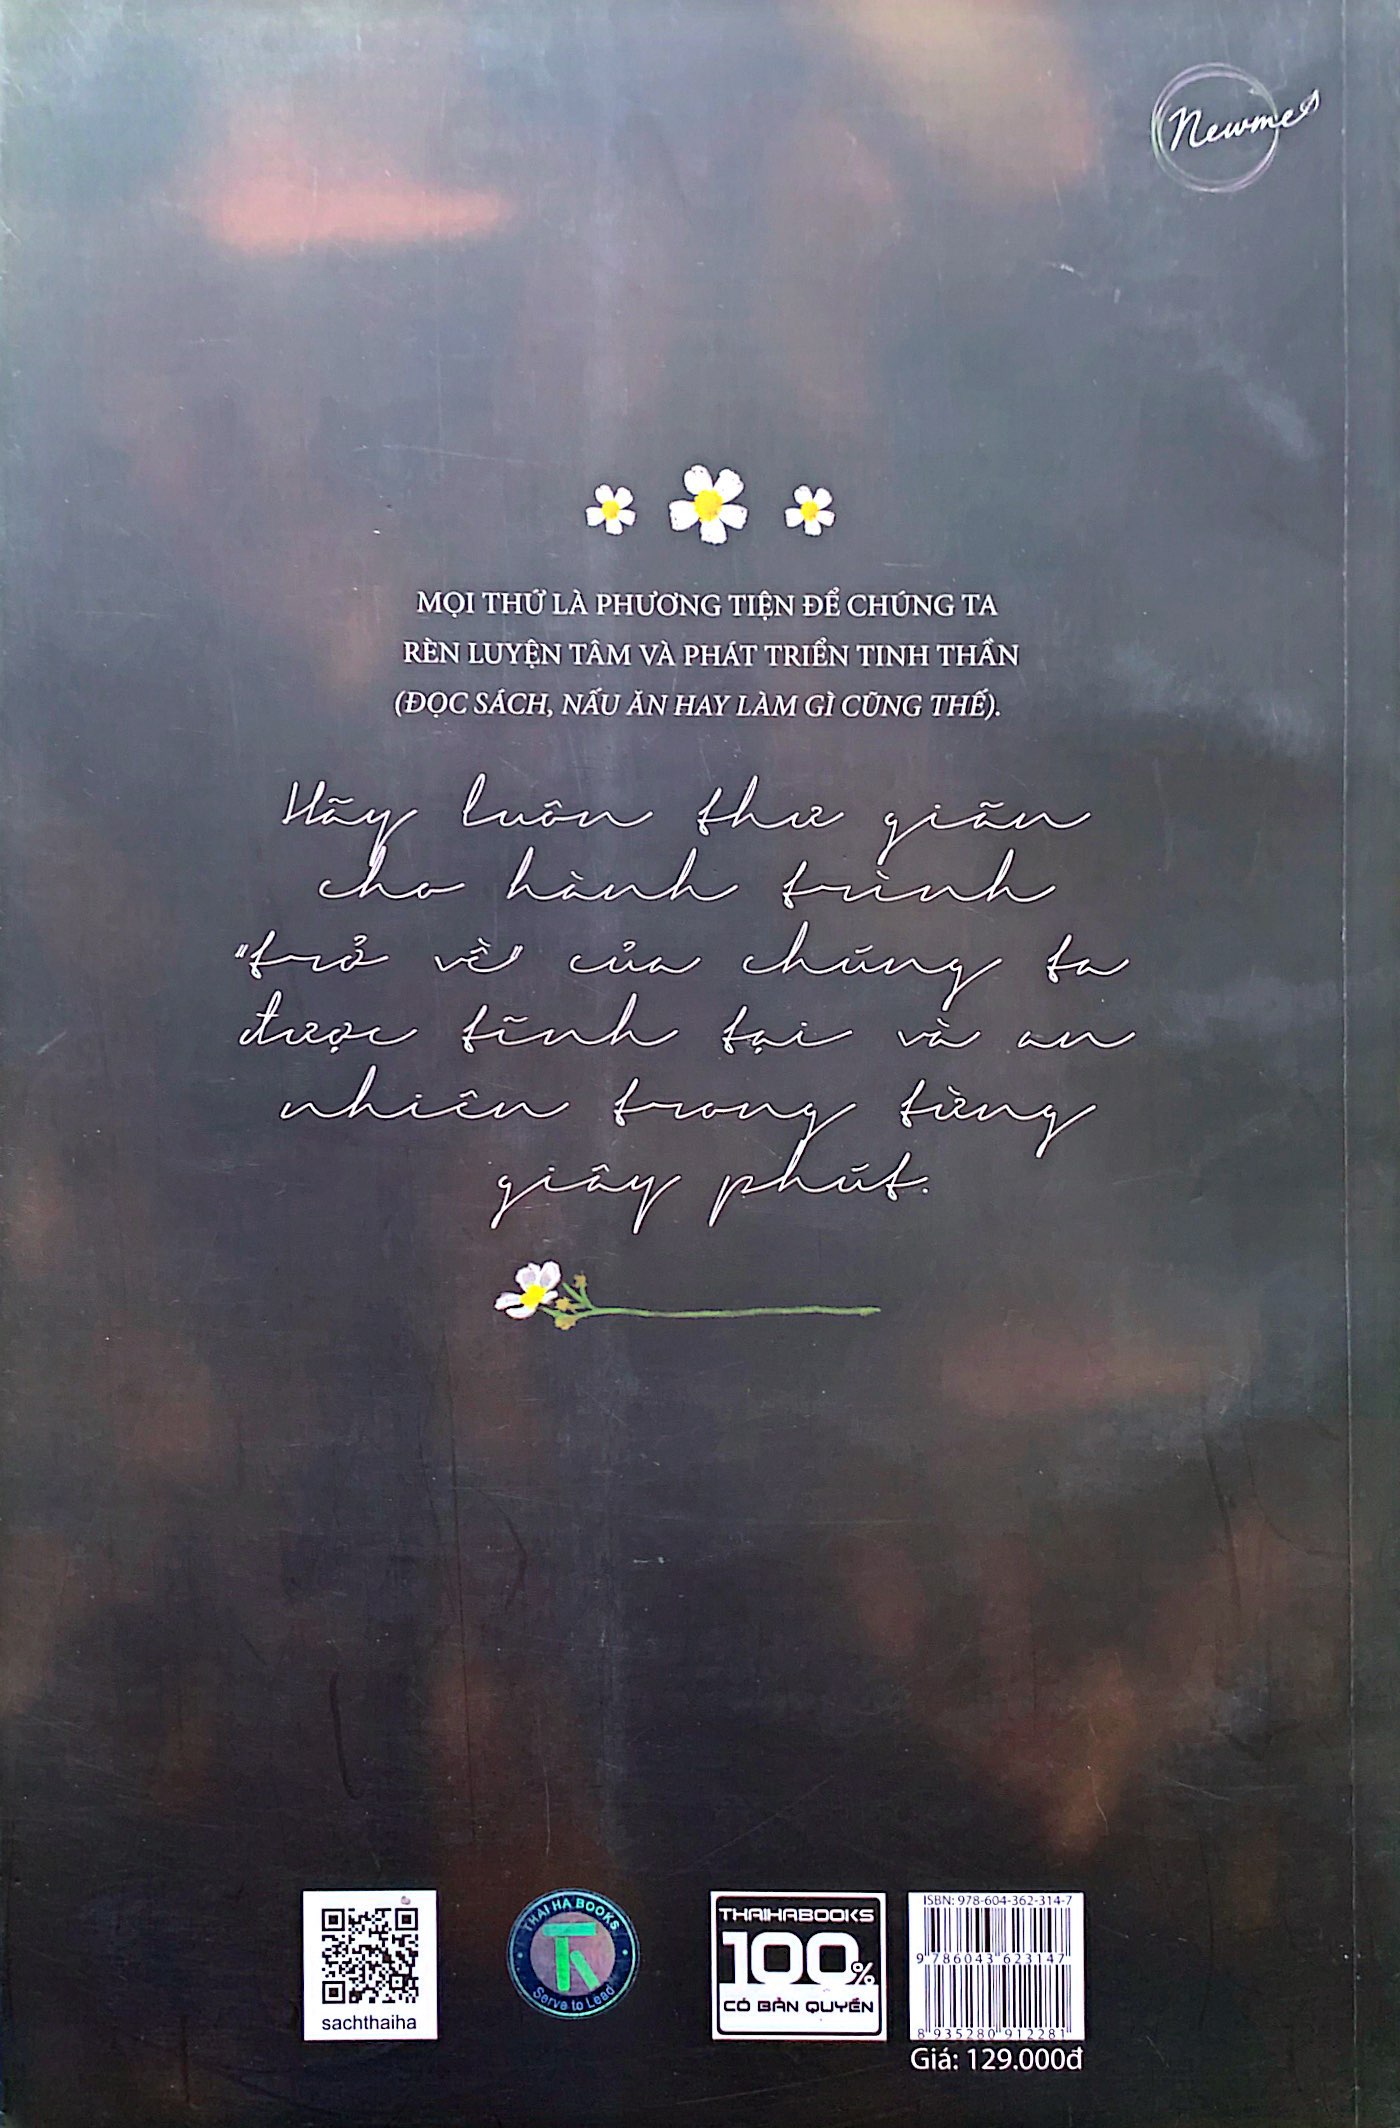 Newme
MỌI THỨ LÀ PHƯƠNG TIỆN ĐỂ CHÚNG TA
RÈN LUYỆN TÂM VÀ PHÁT TRIỂN TINH THẦN
(ĐỌC SÁCH, NẤU ĂN HAY LÀM GÌ CŨNG THẾ).
Hãy luôn thư giãn
cho hành trình
"trở về" của chúng ta
được tĩnh tại và an
nhiên trong từng
giây phút.
sachthaiha
THAI HA BOOKS
Serve to Lead
THAIHABOOKS
100%
CÓ BẢN QUYỀN
ISBN: 978-604-362-314-7
9 786043 623147
8 935280 912281
Giá: 129.000đ